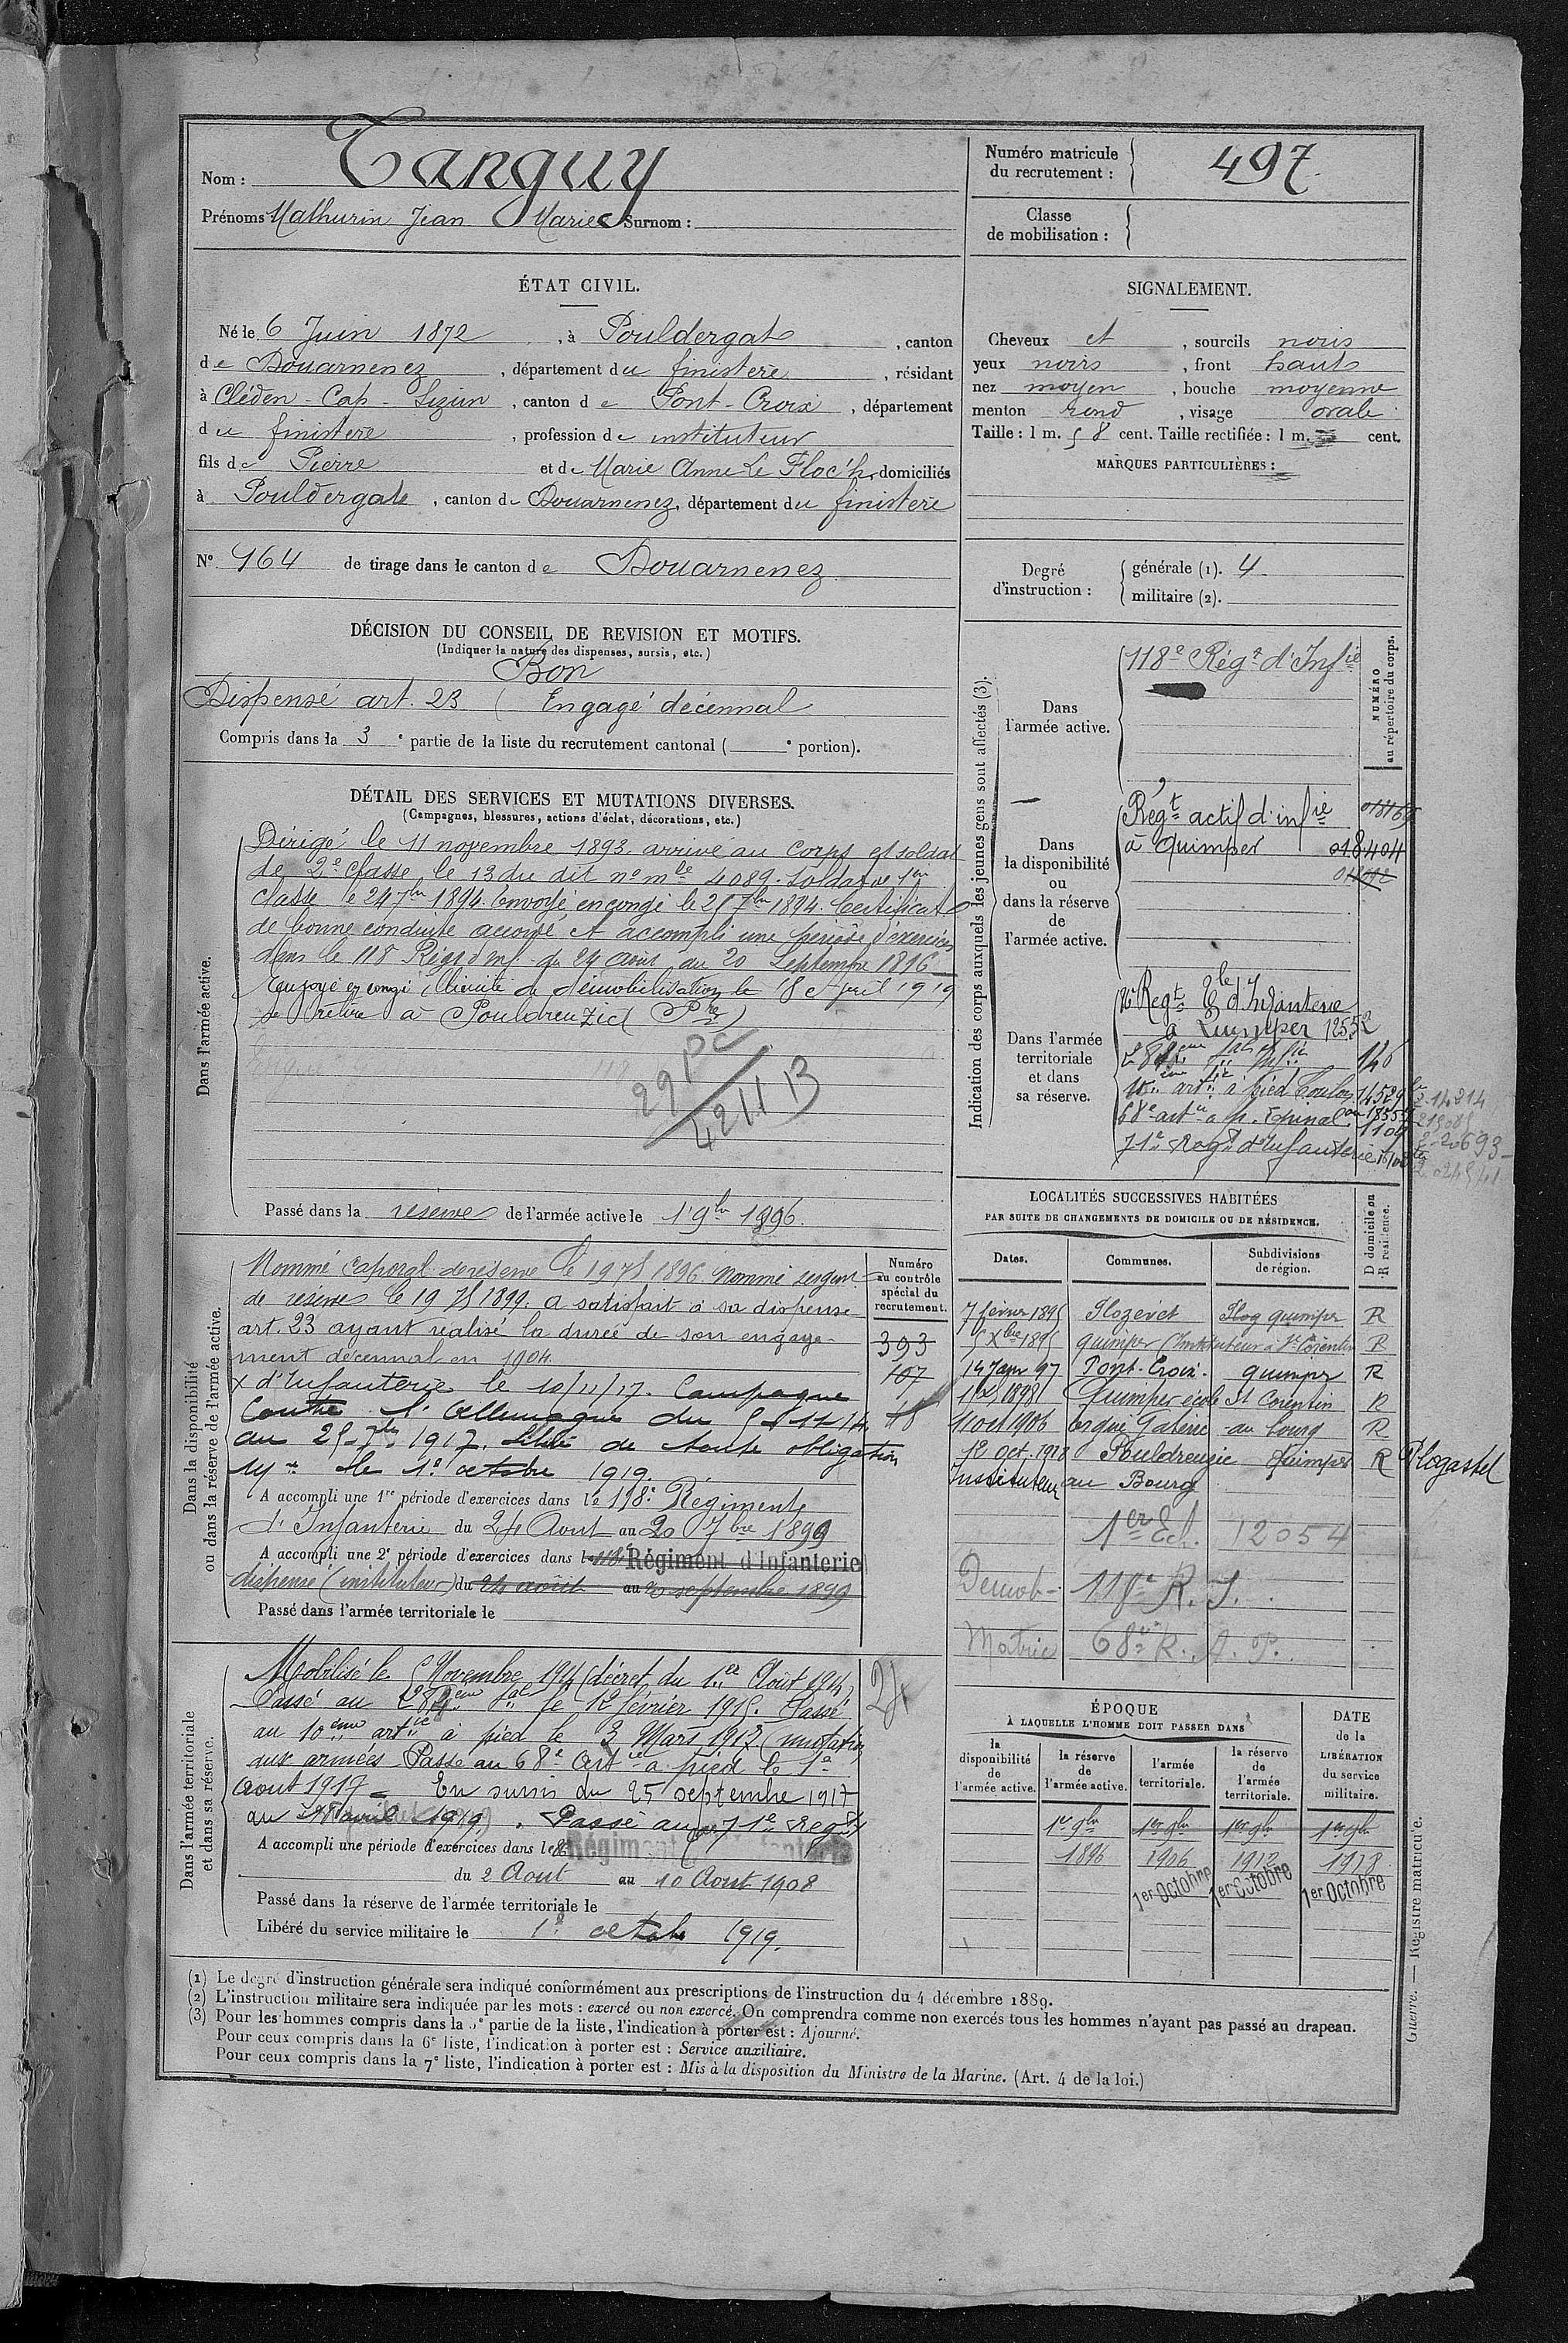 Nom : Tanguy
Prénoms Mathurin Jean Marie Surnom :
Numéro matricule du recrutement : 497
Classe de mobilisation :
ÉTAT CIVIL.
Né le 6 Juin 1872, à Pouldergat, canton
de Douarnenez, département du finistère, résidant
à Cléden-Cap-Sizun, canton de Pont-Croix, département
du finistère, profession de instituteur
fils de Pierre et de Marie Anne Le Floc'h, domiciliés
à Pouldergat, canton de Douarnenez, département du finistère
N° 164 de tirage dans le canton de Douarnenez
SIGNALEMENT.
Cheveux et, sourcils noirs
yeux noirs, front haut
nez moyen, bouche moyenne
menton rond, visage ovale
Taille : 1 m. 58 cent. Taille rectifiée : 1 m. cent.
MARQUES PARTICULIÈRES :
Degré d'instruction :
générale (1). 4
militaire (2).
DÉCISION DU CONSEIL DE REVISION ET MOTIFS.
(Indiquer la nature des dispenses, sursis, etc.)
Bon
Dispensé art. 23 (Engagé décennal
Compris dans la 3e partie de la liste du recrutement cantonal ( e portion).
DÉTAIL DES SERVICES ET MUTATIONS DIVERSES.
(Campagnes, blessures, actions d'éclat, décorations, etc.)
Dans l'armée active.
Dirigé le 11 novembre 1893. arrivé au Corps et soldat
de 2e classe le 13 du dit n° mle 4089. Soldat de 1ère
classe le 24 7bre 1894. Envoyé en congé le 25 7bre 1894. Certificat
de bonne conduite accordé. A accompli une période d'exercices
dans le 118 Régt d'inf. du 24 Août au 20 Septembre 1896
Envoyé en congé illimité de démobilisation le 18 Avril 1919
se retire à Pouldreuzic
29 PC
42 11 13
Passé dans la réserve de l'armée active le 1 9bre 1896.
Indication des corps auxquels les jeunes gens sont affectés (3).
NUMÉRO au répertoire du corps.
Dans l'armée active.
118e Régt d'Infie
Dans la disponibilité ou dans la réserve de l'armée active.
Régt actif d'infie
à Quimper 018404
Dans l'armée territoriale et dans sa réserve.
86e Régt d'Infanterie
à Quimper 12552
10ème artie à pied Toulon 14529
68e artie à p. Epinal
71e Régt d'Infanterie
214214
2-20693
Dans la disponibilité ou dans la réserve de l'armée active.
Nommé caporal de réserve le 19 7bre 1896 Nommé sergent
de réserve le 19 1899. A satisfait à sa dispense
art. 23 ayant réalisé la durée de son engage-
ment décennal en 1904.
x d'Infanterie le 10/11/17. Campagne
Contre l'Allemagne du 5-11-14
au 25-7bre 1917. Libéré de toute obligation
Mre le 1er octobre 1919.
A accompli une 1re période d'exercices dans le 118e Régiment
d'Infanterie du 24 Août au 20 7bre 1899
A accompli une 2e période d'exercices dans le 118e Régiment d'Infanterie
dispensé (instituteur) du 24 août au 20 septembre 1899
Passé dans l'armée territoriale le
Numéro au contrôle spécial du recrutement.
393
107
18
24
LOCALITÉS SUCCESSIVES HABITÉES
PAR SUITE DE CHANGEMENTS DE DOMICILE OU DE RÉSIDENCE.
Dates. Communes. Subdivisions de région. D domicile ou R résidence.
7 février 1895 Plozévet Plog quimper R
5 Xbre 1895 quimper (Instituteur à St Corentin R
14 Janv 97 Pont-Croix. quimper R
1898 Quimper école St Corentin R
11 oct 1906 ergué Gabéric au bourg R
12 oct. 1918 Pouldreuzic Quimper R Plogastel
Instituteur au Bourg
1er Ech. 12054
Demob- 118e R.I.
Matric 68e R.A.P.
Dans l'armée territoriale et dans sa réserve.
Mobilisé le 5 Novembre 1914 (décret du 1er Août 1914)
Passé au le 12 février 1915. Passé
au 10ème artie à pied le 3 Mars 1917 (mutation
aux armées Passé au 68e artie à pied le 1er
aout 1917 = En sursis du 25 septembre 1917
au 18 avril 1919. Passé au 71e Régt
A accompli une période d'exercices dans le 86 Régiment
du 2 Aout au 10 Aout 1908
Passé dans la réserve de l'armée territoriale le
Libéré du service militaire le 1er octobre 1919.
ÉPOQUE
À LAQUELLE L'HOMME DOIT PASSER DANS
la disponibilité de l'armée active. la réserve de l'armée active. l'armée territoriale. la réserve de l'armée territoriale. DATE de la LIBÉRATION du service militaire.
1er 9bre 1er 9bre 1er 9bre 1er 9bre
1896 1906 1912 1918
1er Octobre 1er Octobre 1er Octobre
(1) Le degré d'instruction générale sera indiqué conformément aux prescriptions de l'instruction du 4 décembre 1889.
(2) L'instruction militaire sera indiquée par les mots : exercé ou non exercé. On comprendra comme non exercés tous les hommes n'ayant pas passé au drapeau.
(3) Pour les hommes compris dans la 5e partie de la liste, l'indication à porter est : Ajourné.
Pour ceux compris dans la 6e liste, l'indication à porter est : Service auxiliaire.
Pour ceux compris dans la 7e liste, l'indication à porter est : Mis à la disposition du Ministre de la Marine. (Art. 4 de la loi.)
Guerre. — Registre matricule.